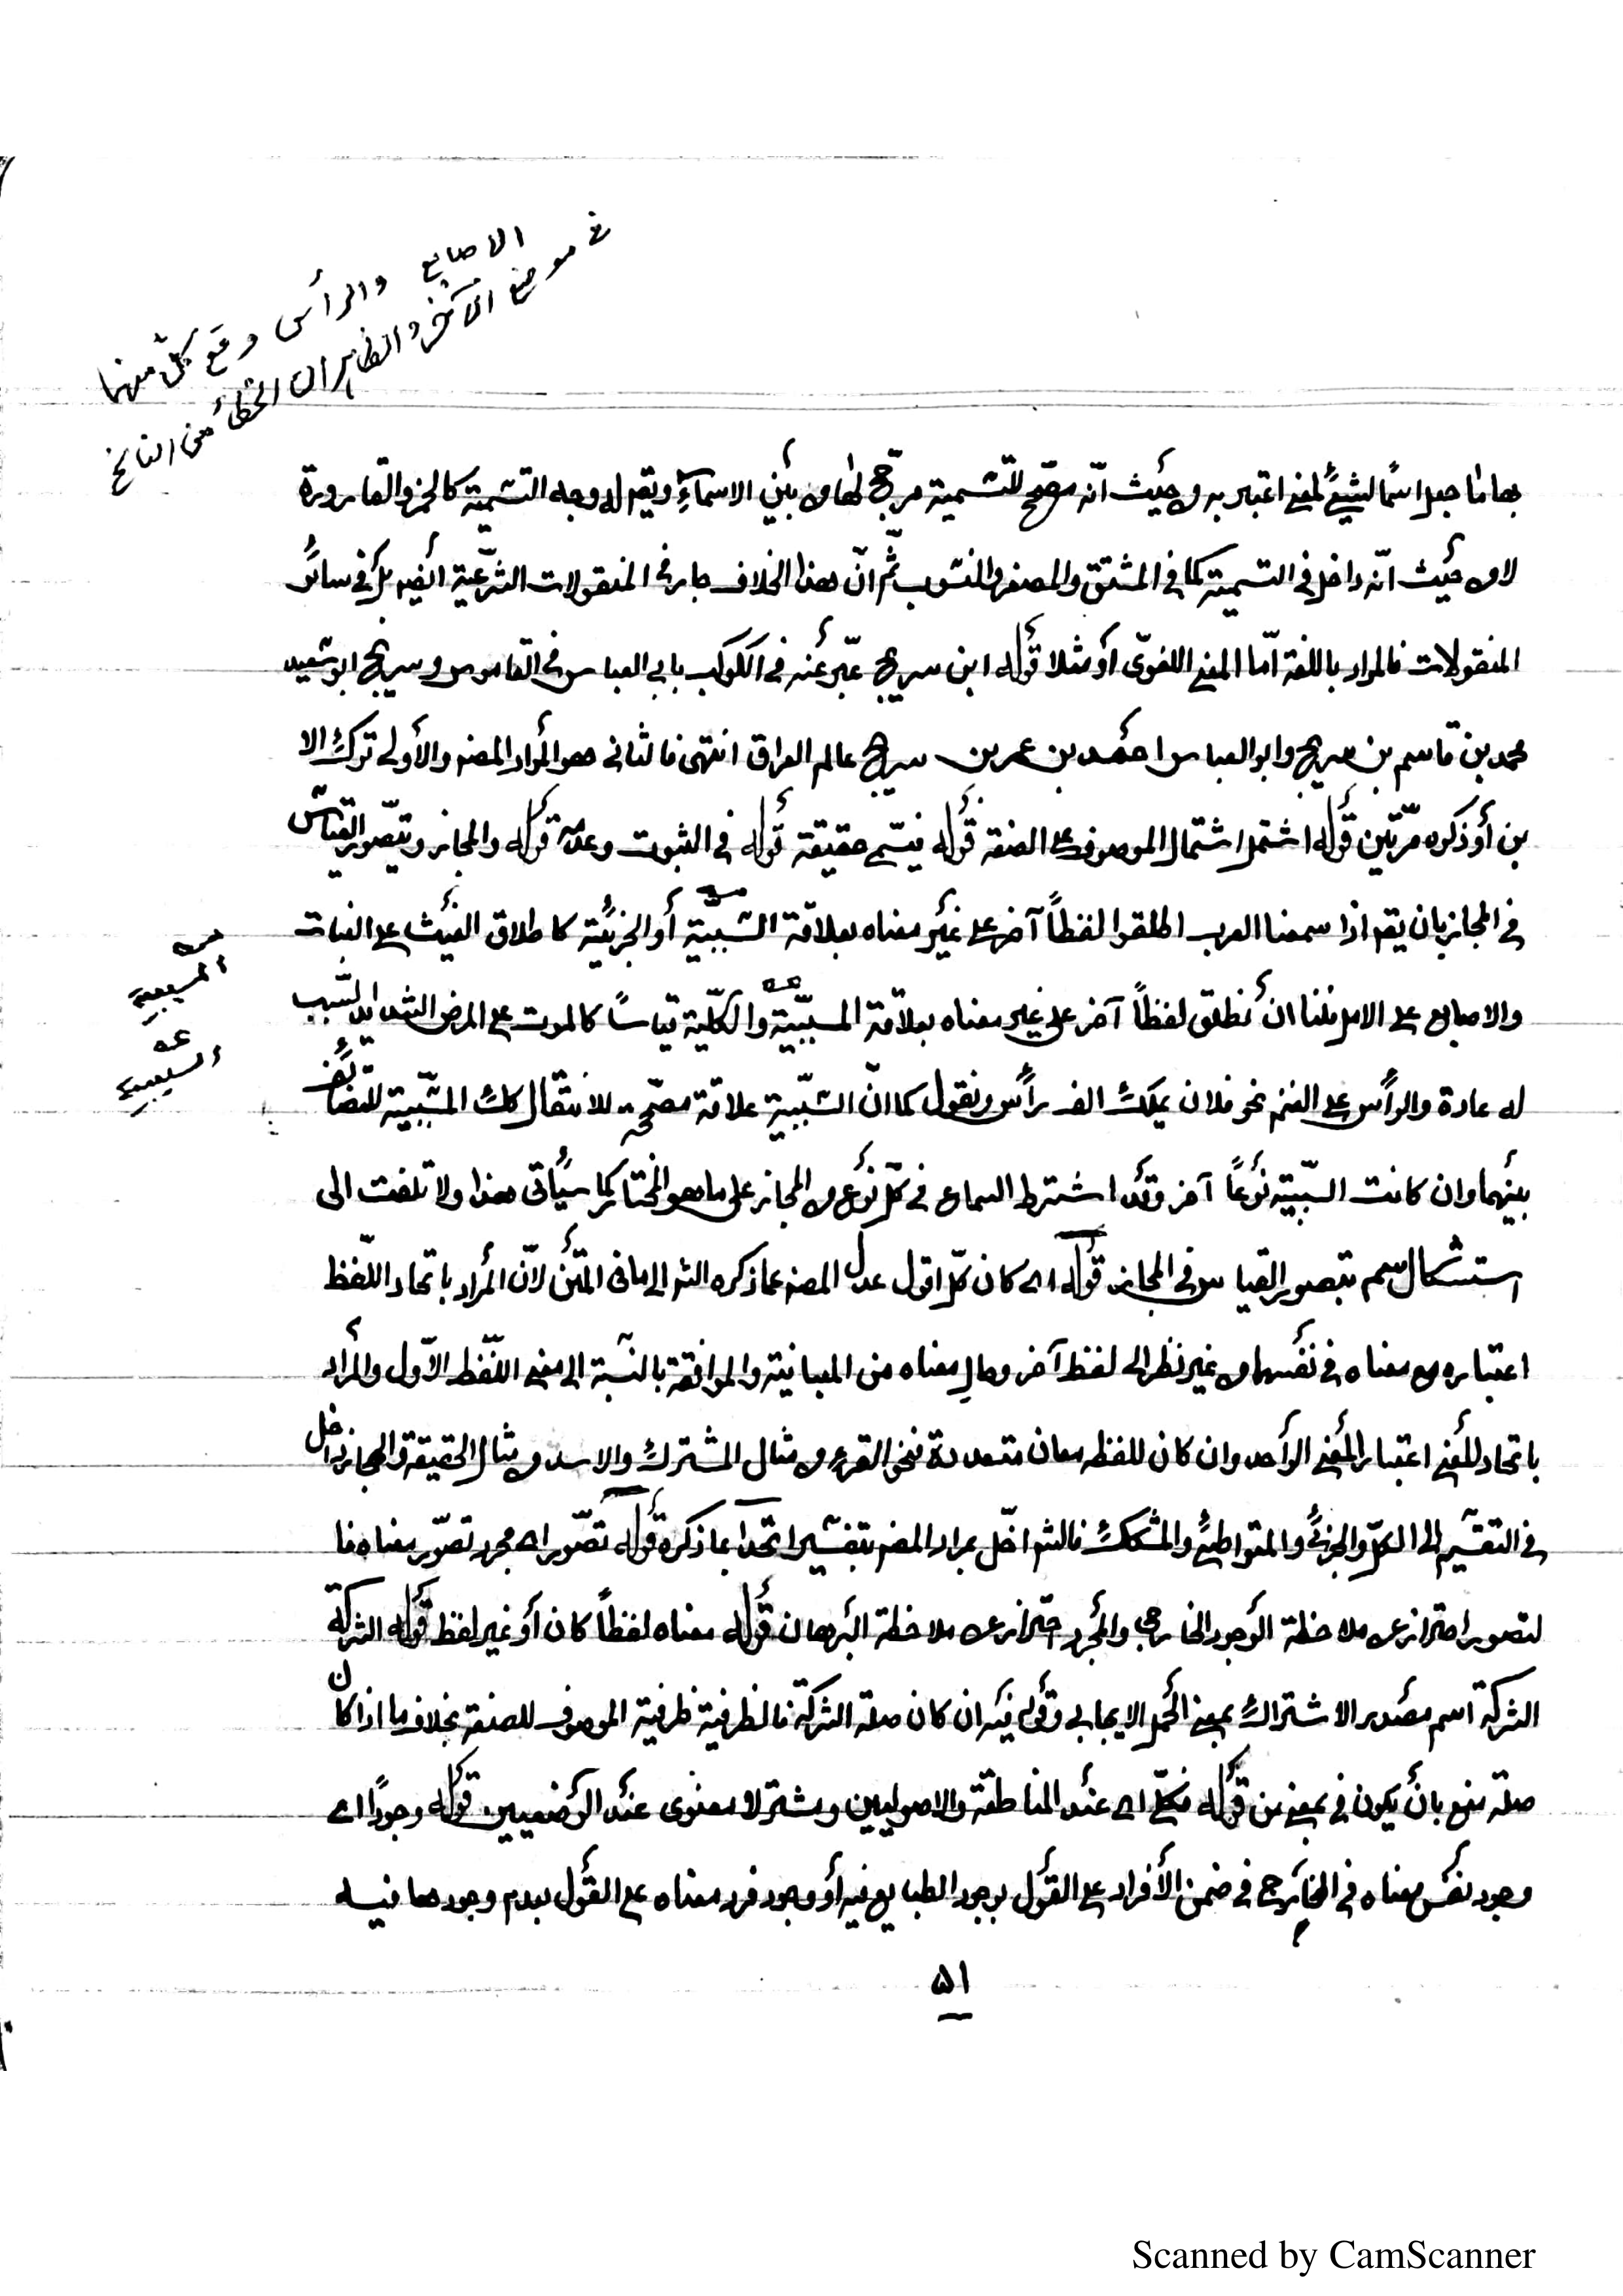 الاصابع والرأس وقع كلّ منهما
في موضع الآخر والظاهر ان الخطأ من الناسخ
بها ما جعل اسمًا لشيئ لمعنى اعتبر به من حيث انّه مصحّح للتسمية مرجّح لها من بين الاسماء ويقم له وجه التسمية كالخمر والقارورة
لا من حيث انّه داخل في التسمية كما في المشتق والمصغر والمنسوب ثمّ انّ هذا الخلاف جار في المنقولات الشرعية أيضم بل في سائر
المنقولات فالمراد باللغة امّا المعنى اللغوىّ أو مثلا قوله ابن سريج عبّر عنه في الكوكب بابي العباس في القاموس وسريج ابو سعيد
محمد بن قاسم بن سريج وابو العباس احمد بن عمر بن سريج عالم العراق انتهى فالثاني هو المراد للمصنه والأولى ترك الا
بن أو ذكره مرّتين قوله اشتمل اشتمال الموصوف على الصفة قوله فيتسم حقيقة قوله في الثبوت وعلّة قوله والمجاز ويتصوّر القياس
في المجاز بان يقم اذا سمعنا العرب اطلقوا لفظاً آخر على غير معناه بعلاقة السّببيّة أو الجزئيّة كاطلاق الغيث على النبات
والاصابع على الامل قلنا ان نطلق لفظاً آخر على غير معناه بعلاقة المسبّبيّة والكلّية قياسًا كالموت على المرض الشديد السّبب
المسببية
السببية
له عادة والرأس على الغنم نحو فلان يملك الف رأس ونقول كما انّ السّببيّة علاقة مصحّحة للانتقال كك المسبّبيّة للتضائف
بينهما وان كانت السّببيّة نوعاً آخر وقد اشترط السماع في كلّ نوع من المجاز على ما هو المختار كما سيأتى هذا ولا تلتفت الى
استشكال سم بتصوير القياس في المجاز قوله اى كان كلّ اقول عدل المصنه عما ذكره الشم الى ما في المتن لانّ المراد باتحاد اللّفظ
اعتباره مع معناه في نفسهما من غير نظر الى لفظ آخر وحال معناه من المباينة والموافقة بالنسبة الى معنى اللّفظ الاّول والمراد
باتحاد المعنى اعتبار المعنى الواحد وان كان للفظه معان متعددة نحو القرء من مثال المشترك والاسد من مثال الحقيقة والمجاز داخل
في التقسيم الى الكلّ والجزئى والمتواطئ والمشكك فالشم اخلّ بمراد المصنم بتفسير اتحدا بما ذكره قوله تصوّر اى مجرد تصوّر معناه فا
لتصور احتراز عن ملاحظة الوجود الخارجى والمجرد احتراز عن ملاحظة البرهان قوله معناه لفظاً كان أو غير لفظ قوله الشركة
الشركة اسم مصدر الاشتراك بمعنى الحمل الايجابى وقوله فيه ان كان صلة الشركة فالظرفية ظرفية الموصوف للصفة بخلاف ما اذا كان
صلة منع بأن يكون في بمعنى من قوله فكلّي اى عند المناطقة والاصوليين ومشترك معنوى عند الوضعيين قوله وجوداً اى
وجود نفس معناه في الخارج في ضمن الأفراد على القول بوجود الطبايع فيه أو وجود فرد معناه على القول بعدم وجودها فيه
٥١
Scanned by CamScanner